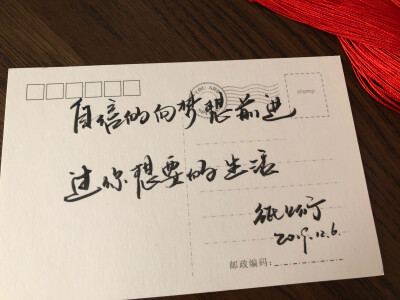 自信的向梦想前进
过你想要的生活
2019.12.6.
stamp
邮政编码: